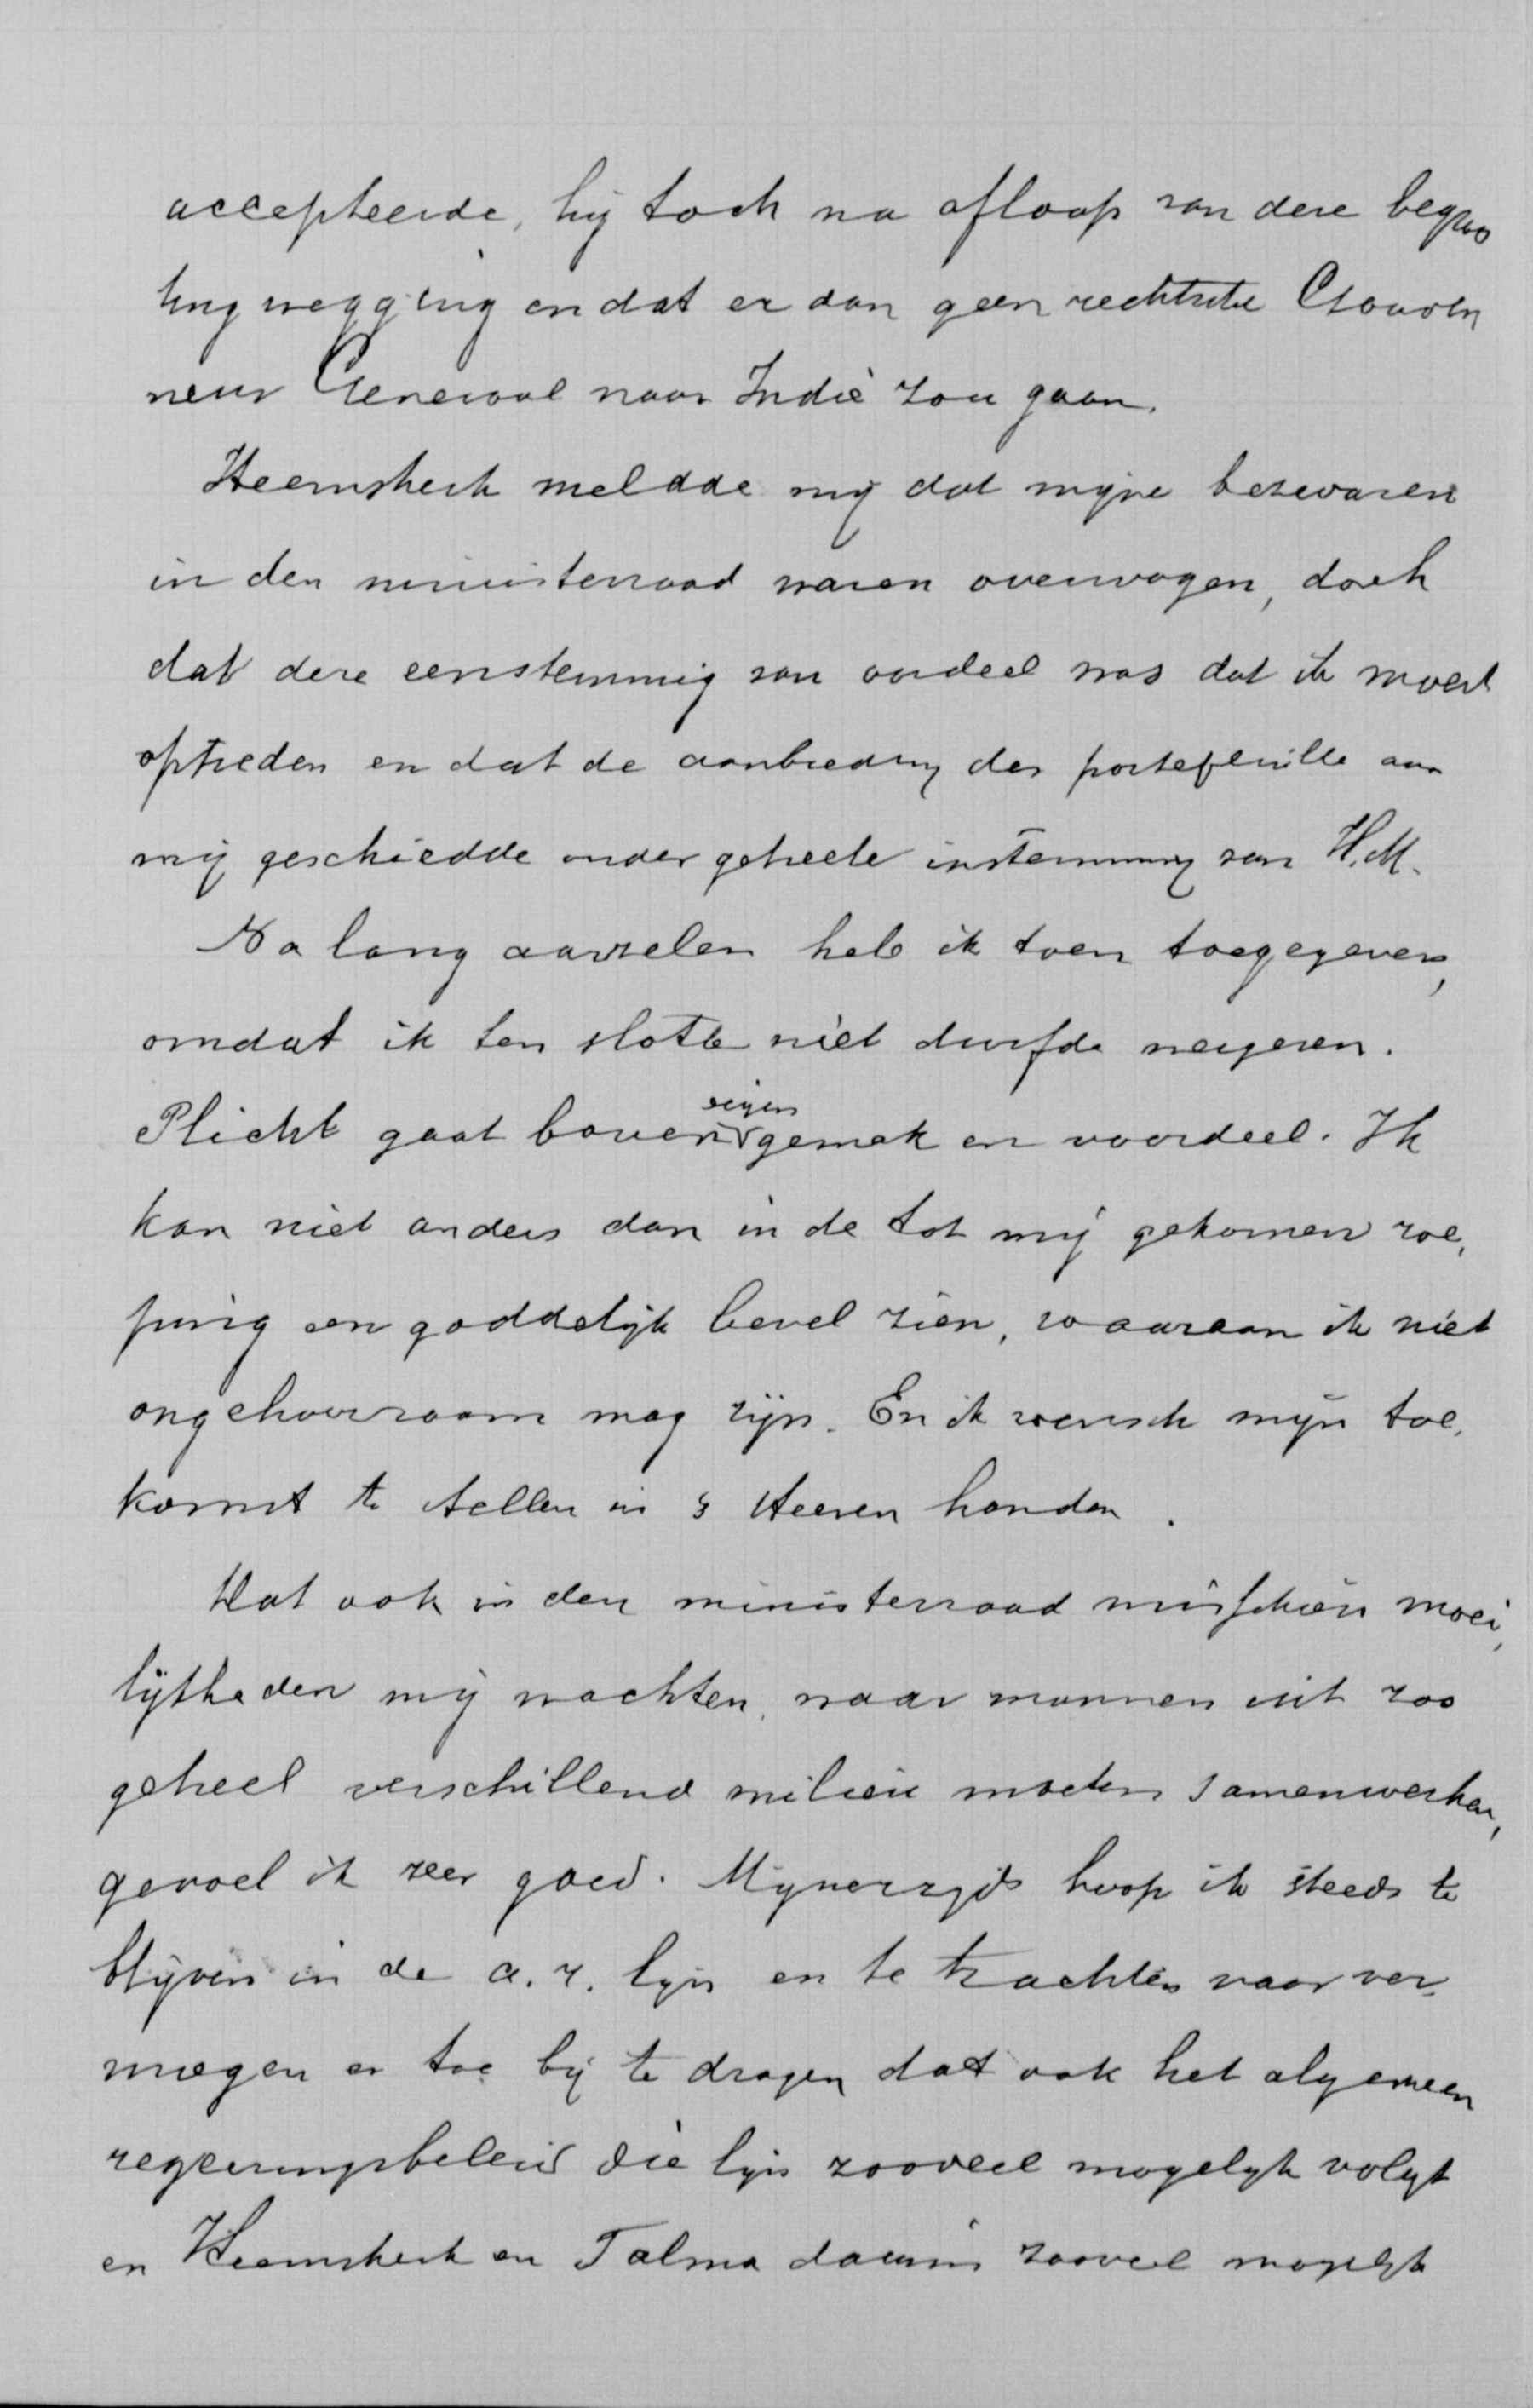 accepteerde, hij toch na afloop van deze begroo
ting wegging en dat er dan geen rechtsche Gouver
neur Generaal naar Indië zou gaan.
Heemskerk meldde mij dat mijne bezwaren
in den ministerraad waren overwogen, doch
dat deze eenstemmig van oordeel was dat ik moest
optreden en dat de aanbieding der portefeuille aan
mij geschiedde onder geheele instemming van H.M.
Na lang aarzelen heb ik toen toegegeven,
omdat ik ten slotte niet durfde weigeren.
Plicht gaat boven eigen gemak en voordeel. Ik
kan niet anders dan in de tot mij gekomen roe,
ping een goddelijk bevel zien, waaraan ik niet
ongehoorzaam mag zijn. En ik wensch mijn toe,
komst te stellen in 's Heeren handen.
Wat ook in den ministerraad misschien moei,
lijkheden mij wachten, waar mannen uit zoo
geheel verschillend milieu moeten samenwerken,
gevoel ik zeer goed. Mijnerzijds hoop ik steeds te
blijven in de a.r. lijn en te trachten naar ver,
mogen er toe bij te dragen dat ook het algemeen
regeeringsbeleid die lijn zooveel mogelijk volgt
en Heemskerk en Talma daarin zooveel mogelijk